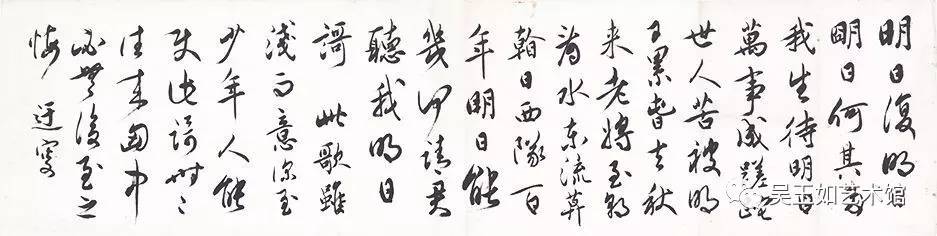 明日復明日
明日何其多
我生待明日
萬事成蹉跎
世人苦被明
日累春去秋
来老將至朝
看水東流暮
看日西墜百
年明日能
幾何請君
聽我明日
謌 此歌雖
淺而意深至
少年人能
使此謌時〻
往来胸中
必無後至之
悔 迂叟
吴玉如艺术馆